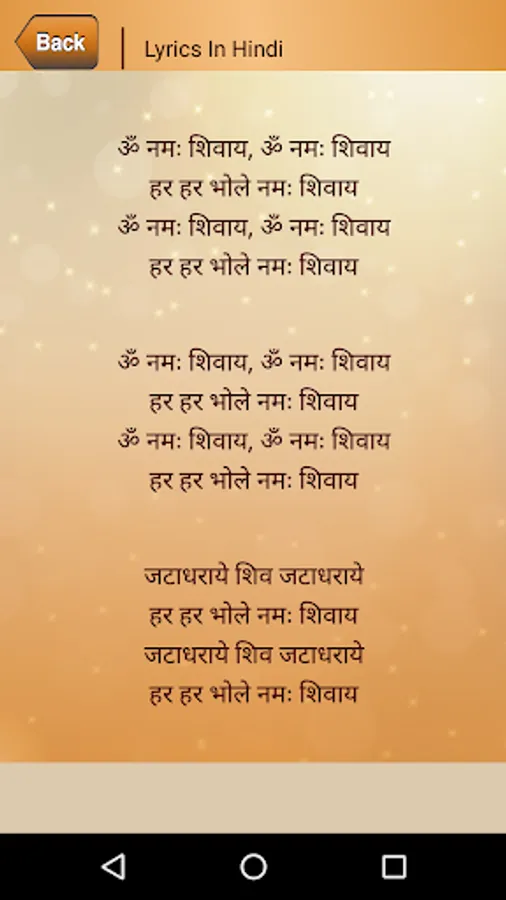 Back
Lyrics In Hindi
ॐ नमः शिवाय, ॐ नमः शिवाय
हर हर भोले नमः शिवाय
ॐ नमः शिवाय, ॐ नमः शिवाय
हर हर भोले नमः शिवाय
ॐ नमः शिवाय, ॐ नमः शिवाय
हर हर भोले नमः शिवाय
ॐ नमः शिवाय, ॐ नमः शिवाय
हर हर भोले नमः शिवाय
जटाधराये शिव जटाधराये
हर हर भोले नमः शिवाय
जटाधराये शिव जटाधराये
हर हर भोले नमः शिवाय